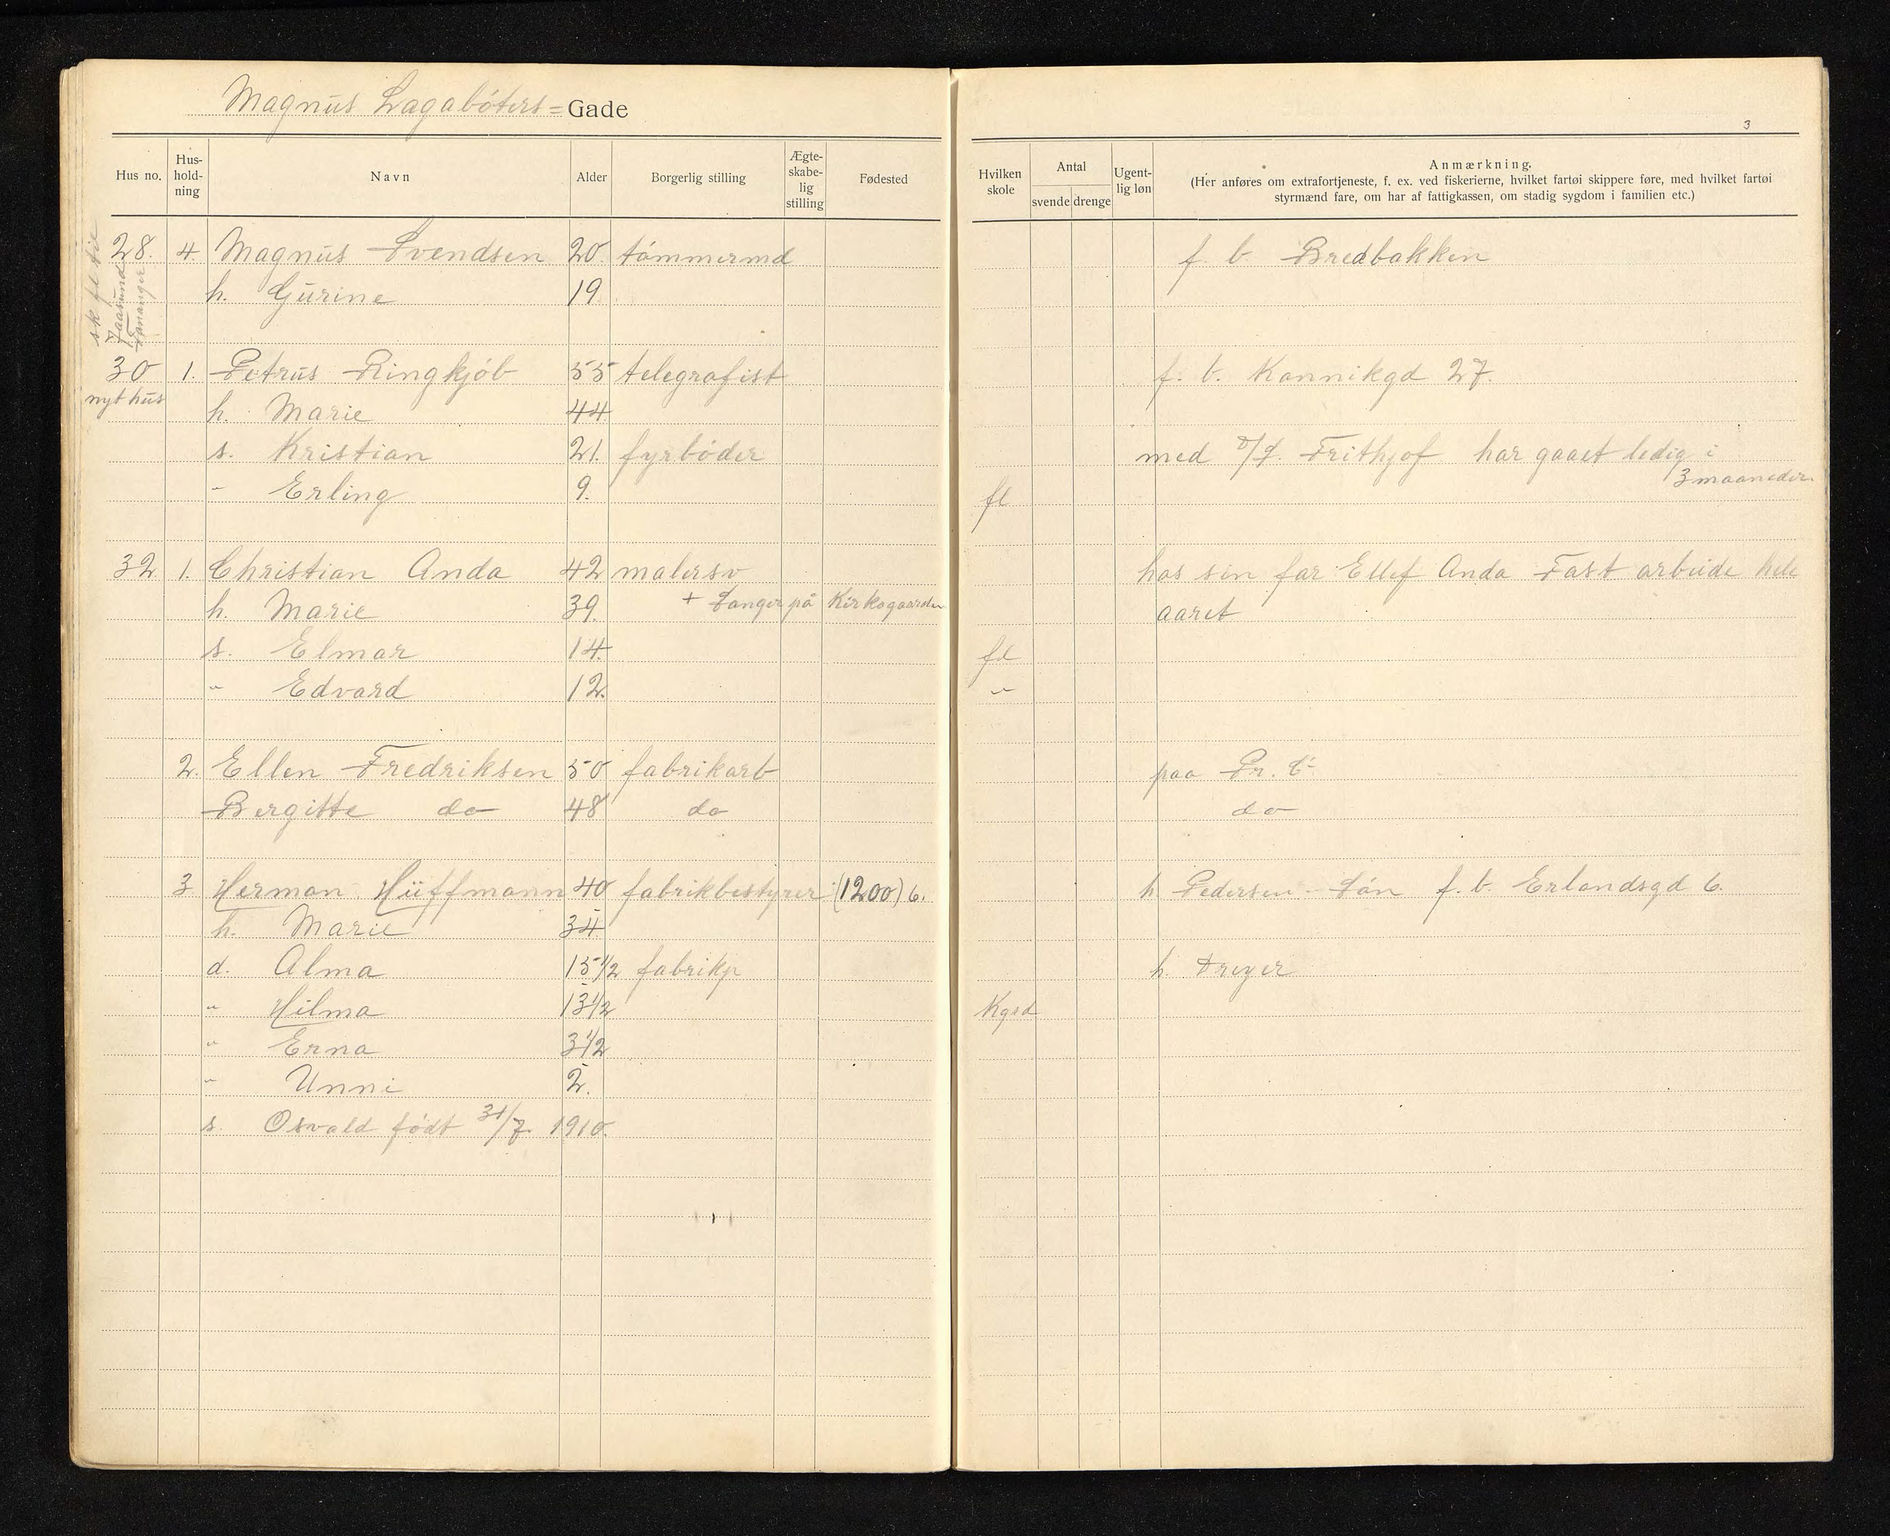 Magnus Lagabøters = Gade
3
Hus no. Hus-hold-ning Navn Alder Borgerlig stilling Ægte-skabe-lig stilling Fødested Hvilken skole Antal svende drenge Ugent-lig løn Anmærkning.
(Her anføres om extrafortjeneste, f. ex. ved fiskerierne, hvilket fartøi skippere føre, med hvilket fartøi
styrmænd fare, om har af fattigkassen, om stadig sygdom i familien etc.)
28. 4 Magnus Svendsen 20. tömmermd f. b. Bredbakken
h. Gurine 19
sk fl til
Tananger
30 1. Petrus Ringkjöb 55 telegrafist f. b. Kannikgd 27.
nyt hus h. Marie 44
s. Kristian 21. fyrböder med D/S. Frithjof har gaaet ledig i
3 maaneder
" Erling 9. fl
32 1. Christian Anda 42 malersv hos sin far Ellef Anda Fast arbeide hele
h. Marie 39. + Sanger på Kirkegaarden aaret
s. Elmar 14. fl
" Edvard 12. "
2. Ellen Fredriksen 50 fabrikarb paa Pr. C
Bergitte do 48 do do
3 Herman Hüffmann 40 fabrikbestyrer (1200) 6. h Pedersen Sön f. b. Erlandsgd 6.
h. Marie 34
d. Alma 15 1/2 fabrikp h. Dreyer
" Hilma 13 1/2 Kgsd
" Erna 3 1/2
" Unni 2.
s. Osvald födt 31/7. 1910.